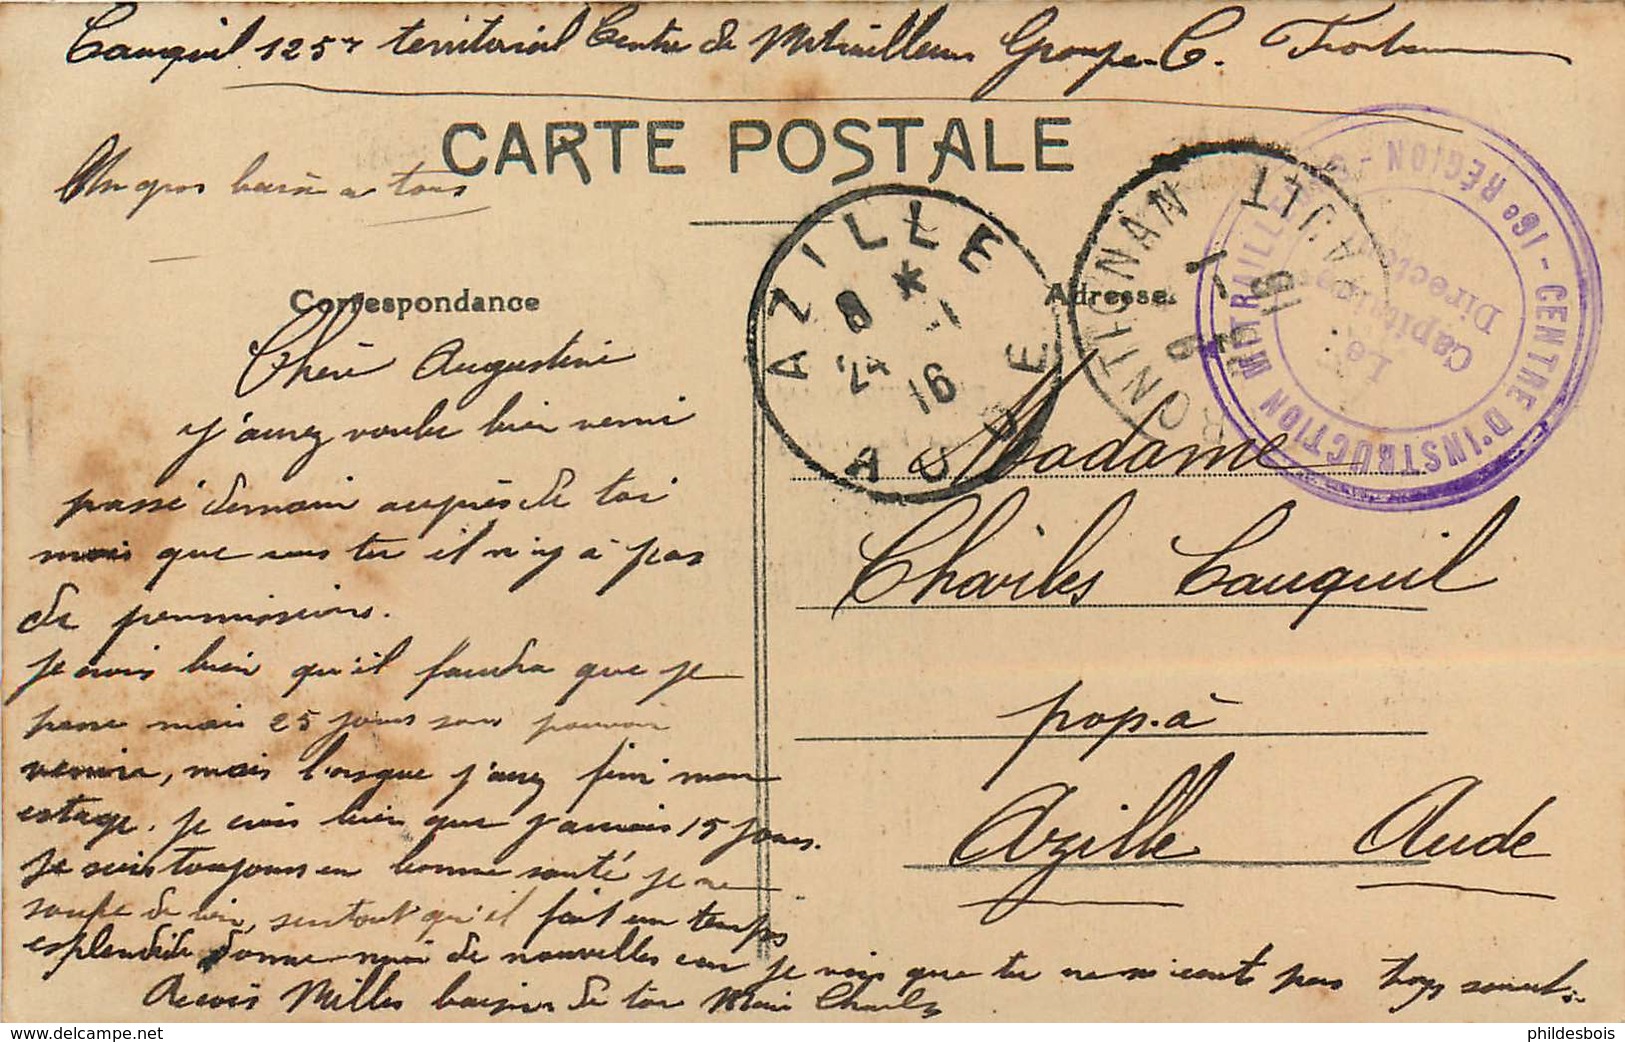 Cauquil 125e territorial Centre de Mitrailleurs Groupe C.
CARTE POSTALE
Un gros baisé a tous
Correspondance
Adresse
AZILLE
8 *
24 -1
16
AUDE
FRONTIGNAN
9
16
16e RÉGION - CENTRE D'INSTRUCTION MITRAILLEURS
Le Capitaine
Directeur
Chère Augustine
j'aurez voulu bien venir
passé demain auprès de toi
mais que veus tu il n'y à pas
de permissions.
je crois bien qu'il faudra que je
passe mais 25 jours sans pouvoir
venire, mais lorsque j'aurez fini mon
estage. je crois bien que j'aurais 15 jours.
je suis toujours en bonne santé je ne
soufre de rien, surtout qu'il fait un temps
esplendide donne-moi de nouvelles car je vois que tu ne m'écrit pas trop souvent.
Recois Milles baisers de ton Mari Charles
Madame
Charles Cauquil
prop. à
Azille Aude
phildesbois